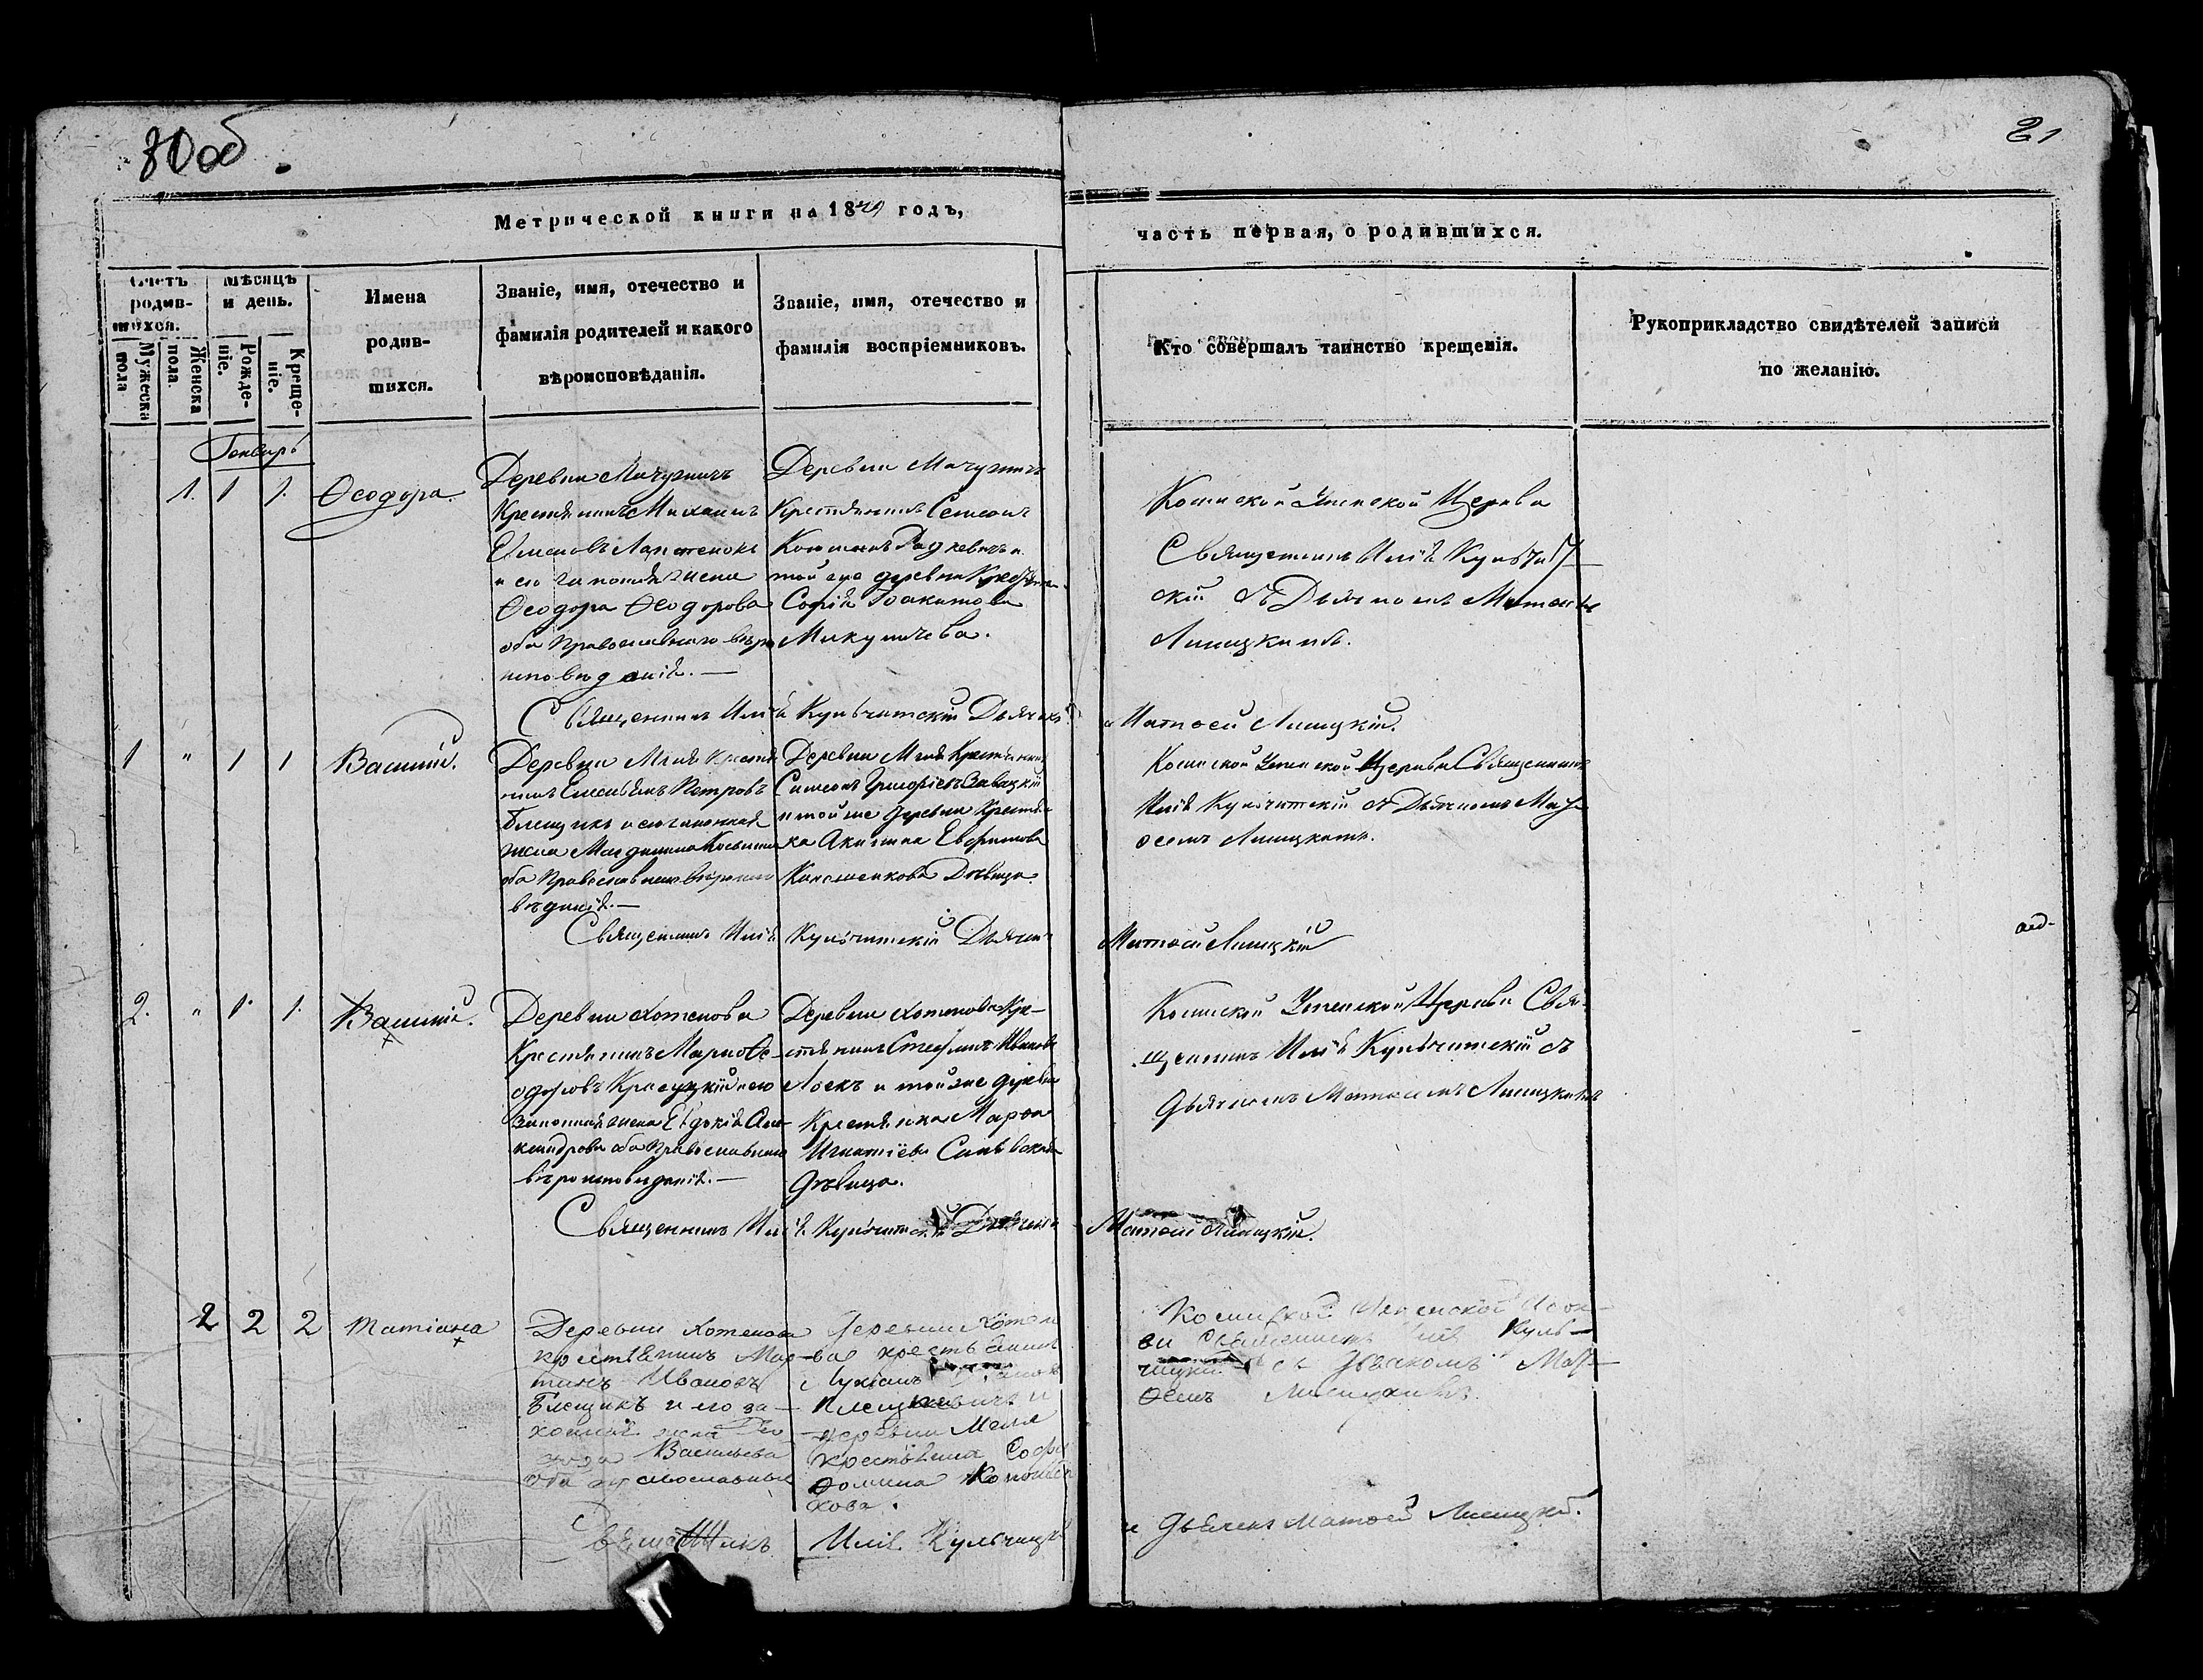 80 об
81
Метрической книги на 1849 годъ,
часть первая, о родившихся.
Счетъ родив-
шихся.
Мужеска пола
Женска пола
Мѣсяцъ и день.
Рожде-
ніе.
Креще-
ніе.
Имена
родив-
шихся.
Званіе, имя, отечество и
фамилія родителей и какого
вѣроисповѣданія.
Званіе, имя, отечество и
фамилія воспріемниковъ.
Кто совершалъ таинство крещенія.
Рукоприкладство свидѣтелей записи
по желанію.
Генварь
1. 1 1.
Ѳеодора.
Деревни
Крестьянинъ Михаилъ
и его законная жена
Ѳеодора Ѳеодорова
оба Православнаго вѣро
исповѣданія. —
Деревни
Крестьянинъ Семенъ
той же деревни
Софія Іоакимова
Микуличева.
Успенской Церкви
Священникъ Илія Кульчиц-
кій съ Дьячкомъ Матѳеемъ
Лисицкимъ.
Священникъ Илія Кульчитскій Дьячекъ
Матѳей Лисицкій.
1 " 1 1
Василій.
Деревни Мгля Крестья
Петровъ
Блещикъ и его законная
жена Магдалина
оба Православнаго вѣроиспо
вѣданія. —
Деревни Мгля Крестьянинъ
Симеонъ Григорьевъ Завацкій
и той же Деревни Крестьян
ка Акилина
Канашенкова Дѣвица.
Успенской Церкви Священникъ
Илія Кульчитскій съ Дьячкомъ Мат-
ѳеемъ Лисицкимъ.
Священникъ Илія Кульчитскій Дьячекъ
Матѳей Лисицкій
2. " 1. 1.
Василій.
Деревни Хотенова
Крестьянинъ Марко Ѳе-
одоровъ Красуцкій и его
Законная жена Евдокія Але-
ксандрова оба Православнаго
вѣроисповѣданія. —
Деревни Хотенова Кре-
стьянинъ Стефанъ Ивановъ
Лоекъ и той же деревни
Крестьянка Марѳа
Игнатіева
дѣвица.
Успенской Церкви Свя-
щенникъ Илія Кульчитскій съ
дьячкомъ Матѳеемъ Лисицкимъ
Священникъ Илія Кульчитскій Дьячекъ
Матѳей Лисицкій.
2 2 2
Татіана
Деревни Хотенова
крестьянинъ Мар-
тинъ Ивановъ
Блещикъ и его за-
конная жена Ѳео
дора Васильева
оба православные
Деревни Хотено
ва крестьянинъ
Лукіанъ
Плещкевичъ и
деревни Мгля
крестьянка Софія
Ѳомина Канашен
кова.
Успенской Церк-
ви Священникъ Илія Куль-
чицкій съ Дьячкомъ Мат-
ѳеемъ Лисицкимъ.
Священникъ Илія Кульчицкій
и дьячекъ Матѳей Лисицкій.